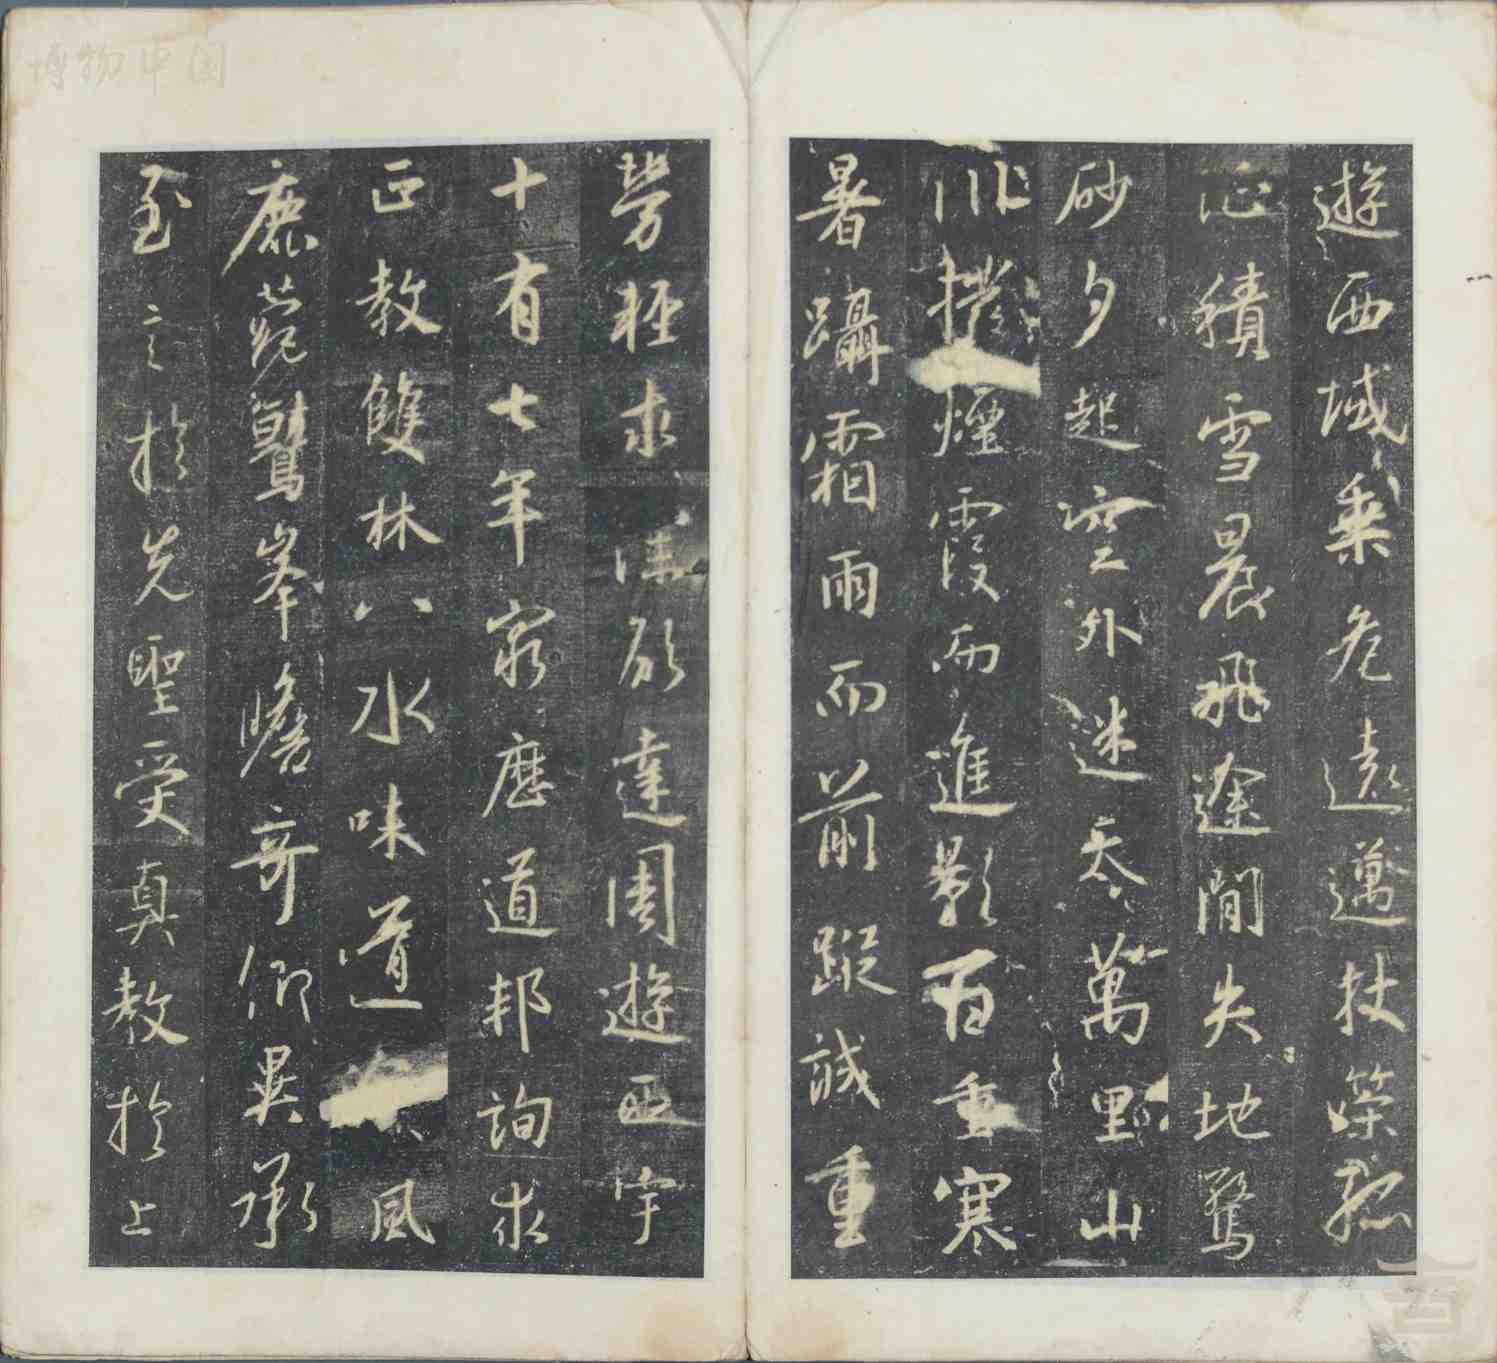 博物中国
遊西域乘危遠邁杖策孤
征積雪晨飛途閒失地驚
砂夕起空外迷天萬里山
川撥煙霞而進影百重寒
暑躡霜雨而前蹤誠重
勞輕求深願達周遊西宇
十有七年窮歷道邦詢求
正教雙林八水味道風
鹿菀鷲峯瞻奇仰異承
至言於先聖受真教於上